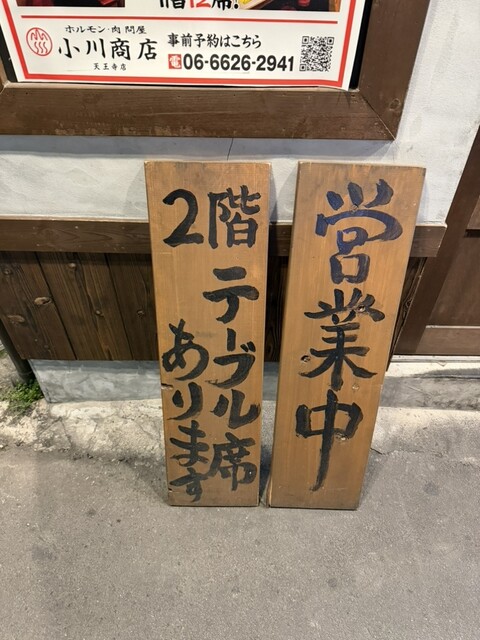 1階12席!
ホルモン・肉 問屋
小川商店
天王寺店
事前予約はこちら
電06-6626-2941
2階
テーブル席
あります
営業中